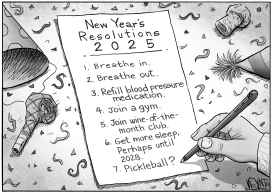 New Year's
Resolutions
2025
1. Breathe in.
2. Breathe out.
3. Refill blood pressure
medication.
4. Join a gym.
5. Join wine-of-the-
month club.
6. Get more sleep.
Perhaps until
2028.
7. Pickleball?